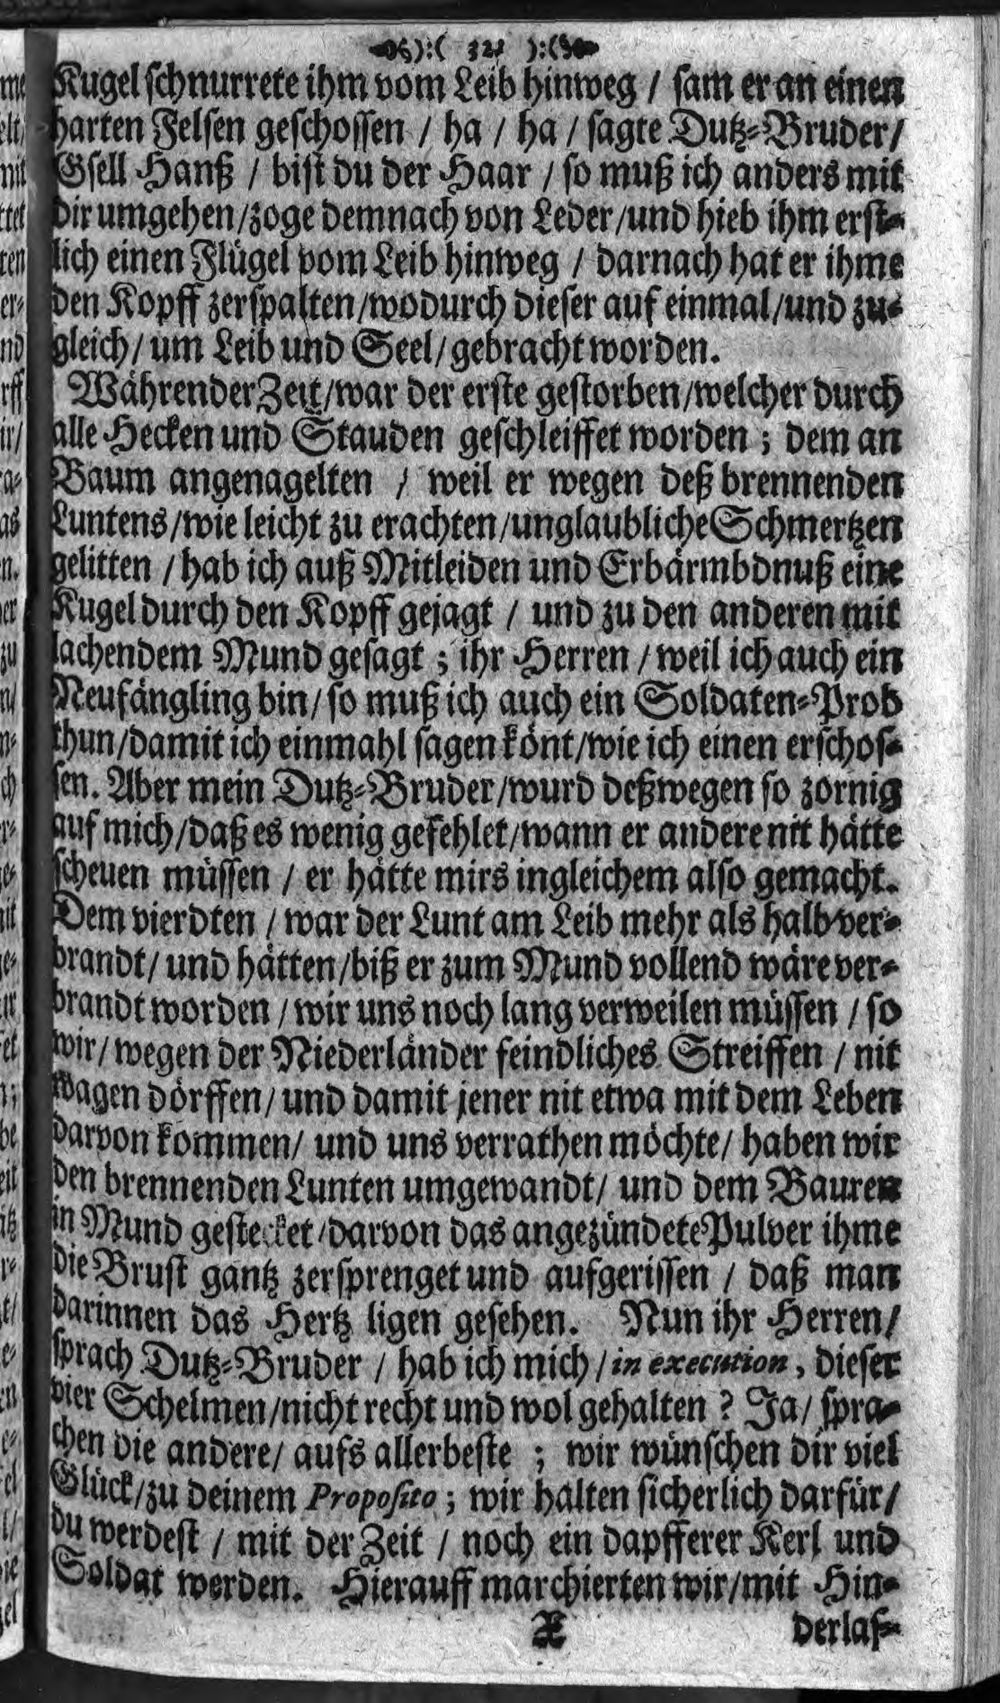 ):( 321 ):(
Kugel schnurrete ihm vom Leib hinweg / sam er an einen
harten Felsen geschossen / ha / ha / sagte Dutz-Bruder/
Gsell Hanß / bist du der Haar / so muß ich anders mit
dir umgehen/zoge demnach von Leder/und hieb ihm erst-
lich einen Flügel vom Leib hinweg / darnach hat er ihme
den Kopff zerspalten/wodurch dieser auf einmal/und zu-
gleich/ um Leib und Seel/gebracht worden.
Währender Zeit/war der erste gestorben/welcher durch
alle Hecken und Stauden geschleiffet worden ; dem an
Baum angenagelten / weil er wegen deß brennenden
Luntens/wie leicht zu erachten/unglaubliche Schmertzen
gelitten / hab ich auß Mitleiden und Erbärmbdnuß eine
Kugel durch den Kopff gejagt / und zu den anderen mit
lachendem Mund gesagt ; ihr Herren / weil ich auch ein
Neufängling bin/ so muß ich auch ein Soldaten-Prob
thun/damit ich einmahl sagen könt/wie ich einen erschos-
sen. Aber mein Dutz-Bruder/wurd deßwegen so zornig
auf mich/daß es wenig gefehlet/wann er andere nit hätte
scheuen müssen / er hätte mirs ingleichem also gemacht.
Dem vierdten / war der Lunt am Leib mehr als halb ver-
brandt/ und hätten/biß er zum Mund vollend wäre ver-
brandt worden / wir uns noch lang verweilen müssen / so
wir/ wegen der Niederländer feindliches Streiffen / nit
wagen dörffen/ und damit jener nit etwa mit dem Leben
darvon kommen/ und uns verrathen möchte/ haben wir
den brennenden Lunten umgewandt/ und dem Bauren
in Mund gestecket/darvon das angezündete Pulver ihme
die Brust gantz zersprenget und aufgerissen / daß man
darinnen das Hertz ligen gesehen. Nun ihr Herren/
sprach Dutz-Bruder / hab ich mich / in execution, dieser
vier Schelmen/nicht recht und wol gehalten ? Ja/ spra-
chen die andere/ aufs allerbeste ; wir wünschen dir viel
Glück/zu deinem Proposito ; wir halten sicherlich darfür/
du werdest / mit der Zeit / noch ein dapfferer Kerl und
Soldat werden. Hierauff marchierten wir/mit Hin-
X derlas-